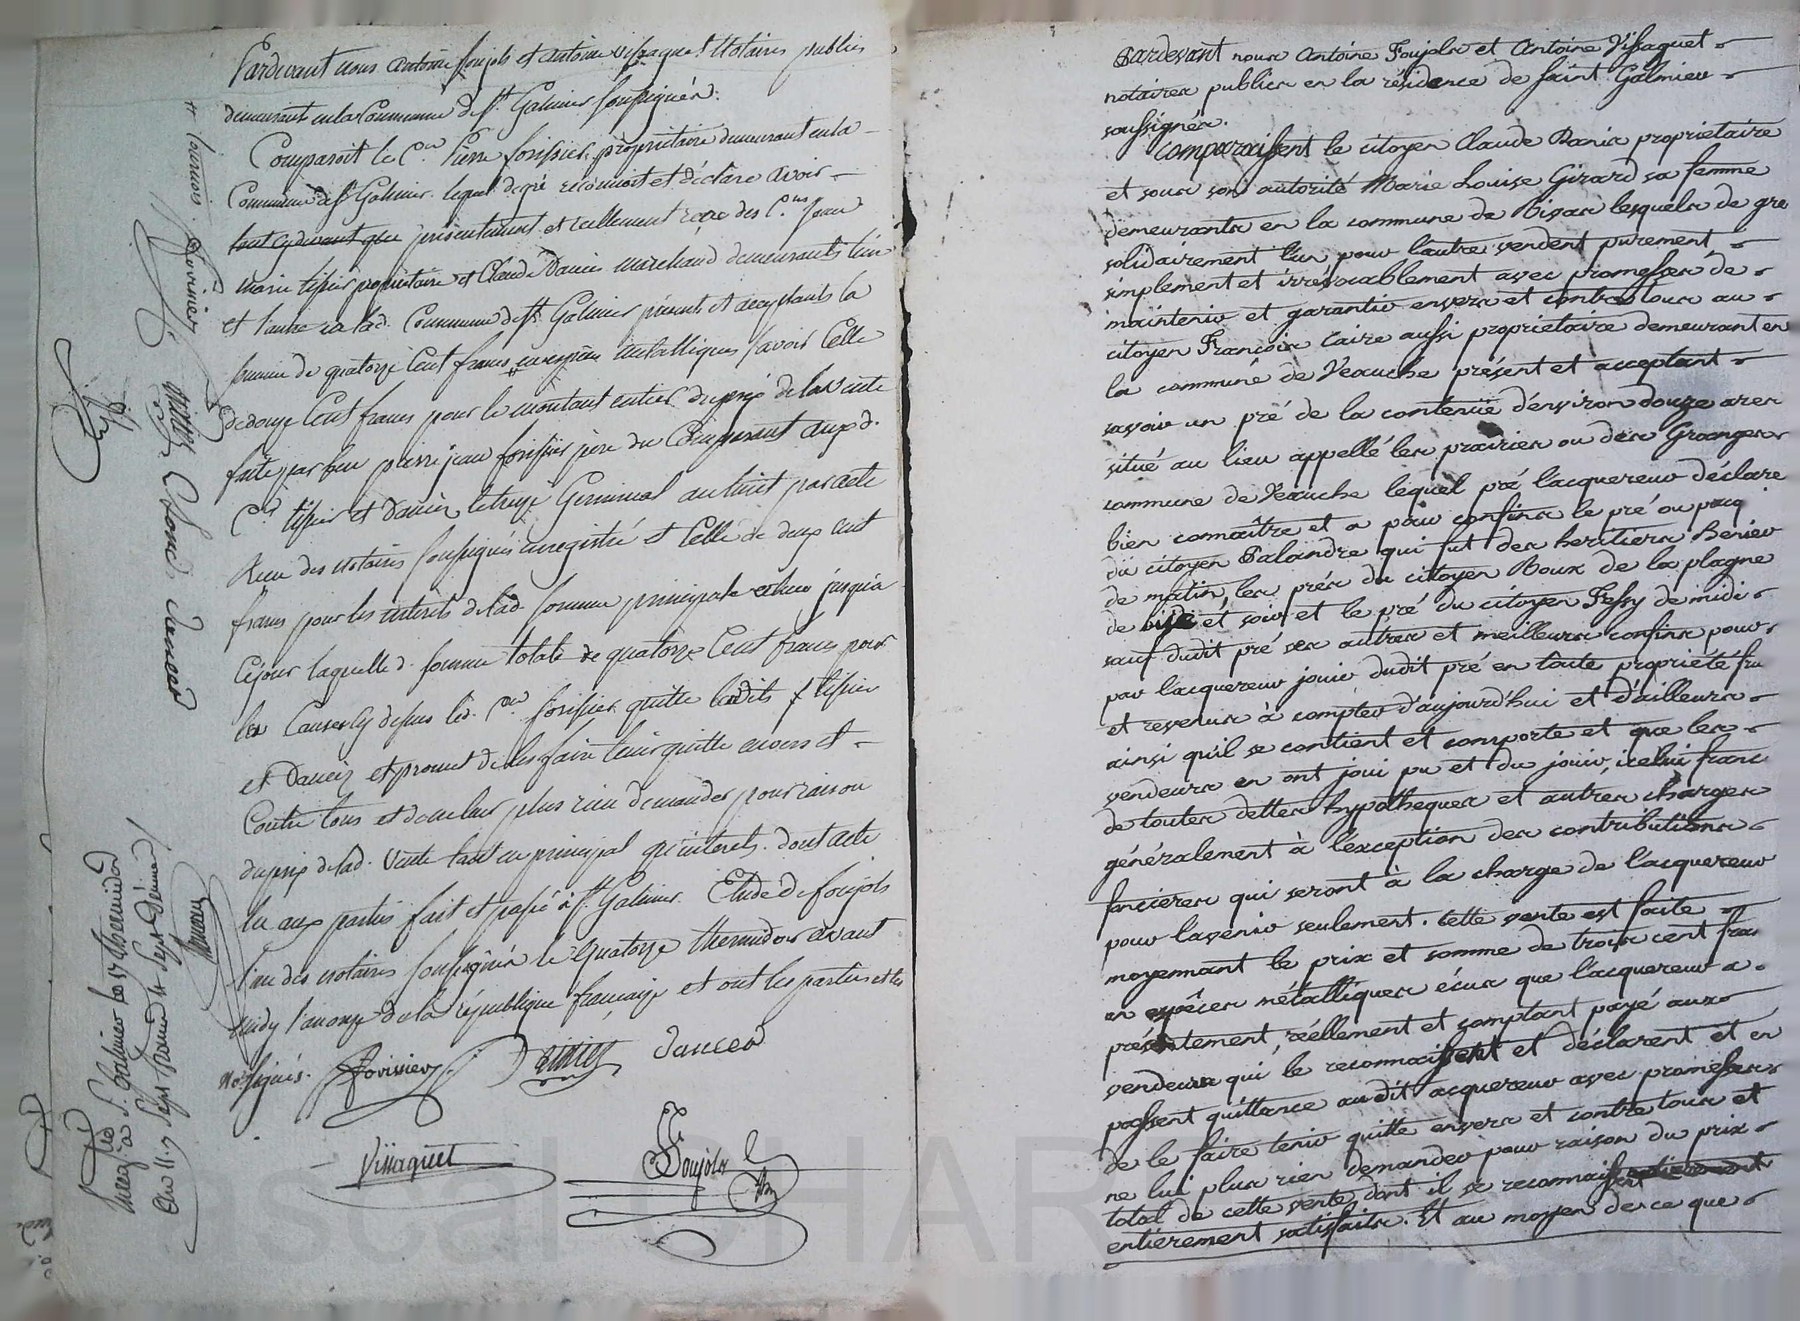 Pardevant nous antoine foujols et antoine vissaguet Notaires publics
demeurant en la Commune de St. Galmier soussignés.
Comparoit le Cen. Pierre forissier propriétaire demeurant en la
Commune de St. Galmier. lequel de gré reconnoit et déclare avoir
présentement et reellement reçu des Cens. Jean
marie tissier propriétaire et Claude Dancer marchand demeurants l'un
et l'autre en lad. Commune de St. Galmier présents et acceptants la
somme de quatorze Cent francs en espèces métalliques savoir Celle
de douze Cent francs pour le montant entier du prix de la vente
faite par feu pierre jean forissier père du Comparant auxd.
Cens. tissier et Dancer le treize Germinal an huit par acte
Reçu des notaires soussignés enregistré et Celle de deux cent
francs pour les intérêts de lad. somme principale echus jusqu'à
Cejour laquelle d. somme totale de quatorze Cent francs pour
les Causes Cy dessus led. Cen. forissier quitte lesdits Cs. tissier
et Dancer et promet de les faire tenir quitte envers et
Contre tous et de ne leur plus rien demander pour raison
du prix de lad. vente tant en principal qu'interets. dont acte
lu aux parties fait et passé à St. Galmier. Etude de foujols
l'un des notaires soussignés le quatorze thermidor avant
midy l'an onze de la république française et ont les parties et les
nores. signés. forissier tissier Dancer
Vissaguet Foujols
Claude Dancer
Enreg. à St. Galmier le 17 thermidor
an 11. 9 Sept francs et Sept décimes
Pardevant nous Antoine Foujols et Antoine Vissaguet
notaires publics en la résidence de saint Galmier
soussignés.
Comparaissent le citoyen Claude Danis proprietaire
et sous son autorité Marie Louise Girard sa femme
demeurants en la commune de Rivas lesquels de gré
solidairement l'un pour l'autre vendent purement
simplement et irrévocablement avec promesses de
maintenir et garantir envers et contre tous au
citoyen François Caire aussi proprietaire demeurant en
la commune de Veauche présent et acceptant
savoir un pré de la contenüe d'environ douze ares
situé au lieu appellé les prairies ou des Granges
commune de Veauche lequel pré l'acquereur déclare
bien connaître et a pour confins le pré ou paq.
du citoyen Palandre qui fut des heritiers Benier
de matin, les prés du citoyen Roux de la plagne
de bise et soir et le pré du citoyen Fessy de midi
sauf dudit pré ses autres et meilleurs confins pour
par l'acquereur jouir dudit pré en toute propriété fru
et revenus à compter d'aujourd'hui et d'ailleurs
ainsi qu'il se contient et comporte et que les
vendeurs en ont joui pu et du jouir, icelui franc
de toutes dettes hypotheques et autres charges
généralement à l'exception des contributions
foncieres qui seront à la charge de l'acquereur
pour l'avenir seulement. Cette vente est faite
moyennant le prix et somme de trois cent fran
en espèces métalliques écus que l'acquereur a
présentement, réellement et comptant payé aux
vendeurs qui le reconnaissent et déclarent et en
passent quittance audit acquereur avec promesses
de le faire tenir quitte envers et contre tous et
ne lui plus rien demander pour raison du prix
total de cette vente dont il se reconnaissent
entièrement satisfaits. Et au moyen de ce que